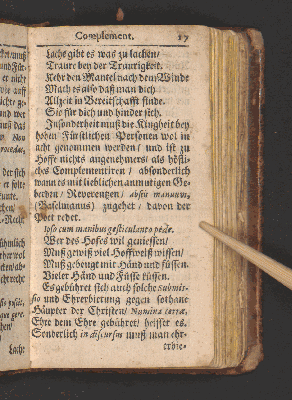 Complement. 17
Lachs gibt es was zu lachen/
Traure bey der Traurigkeit.
Kehr den Mantel nach dem Winde
Mach es also daß man dich
Allzeit in Bereitschafft finde.
Sie für dich und hinder sich.
Insonderheit muß die Klugheit bey
hohen Fürstlichen Personen wol in
acht genommen werden/ und ist zu
Hoffe nichts angenehmers/ als höfli-
ches Complementiren/ absonderlich
wann es mit lieblichen anmutigen Ge-
berden/ Reverentzen/ absit manuum,
(Baselmanus) zugehet/ davon der
Poet redet.
Ipso cum manibus gesticulante pede.
Wer des Hofes wil geniessen/
Muß gewiß viel Hoffweiß wissen/
Muß gebeugt mit Händ und füssen
Vieler Händ und Füsse küssen.
Es gebühret sich auch solche Submis-
sio und Ehrerbietung gegen sothane
Häupter der Christen/ Numina terræ,
Ehre dem Ehre gebühret/ heisset es.
Sonderlich in discursu muß man ehr-
erbie-
Lache